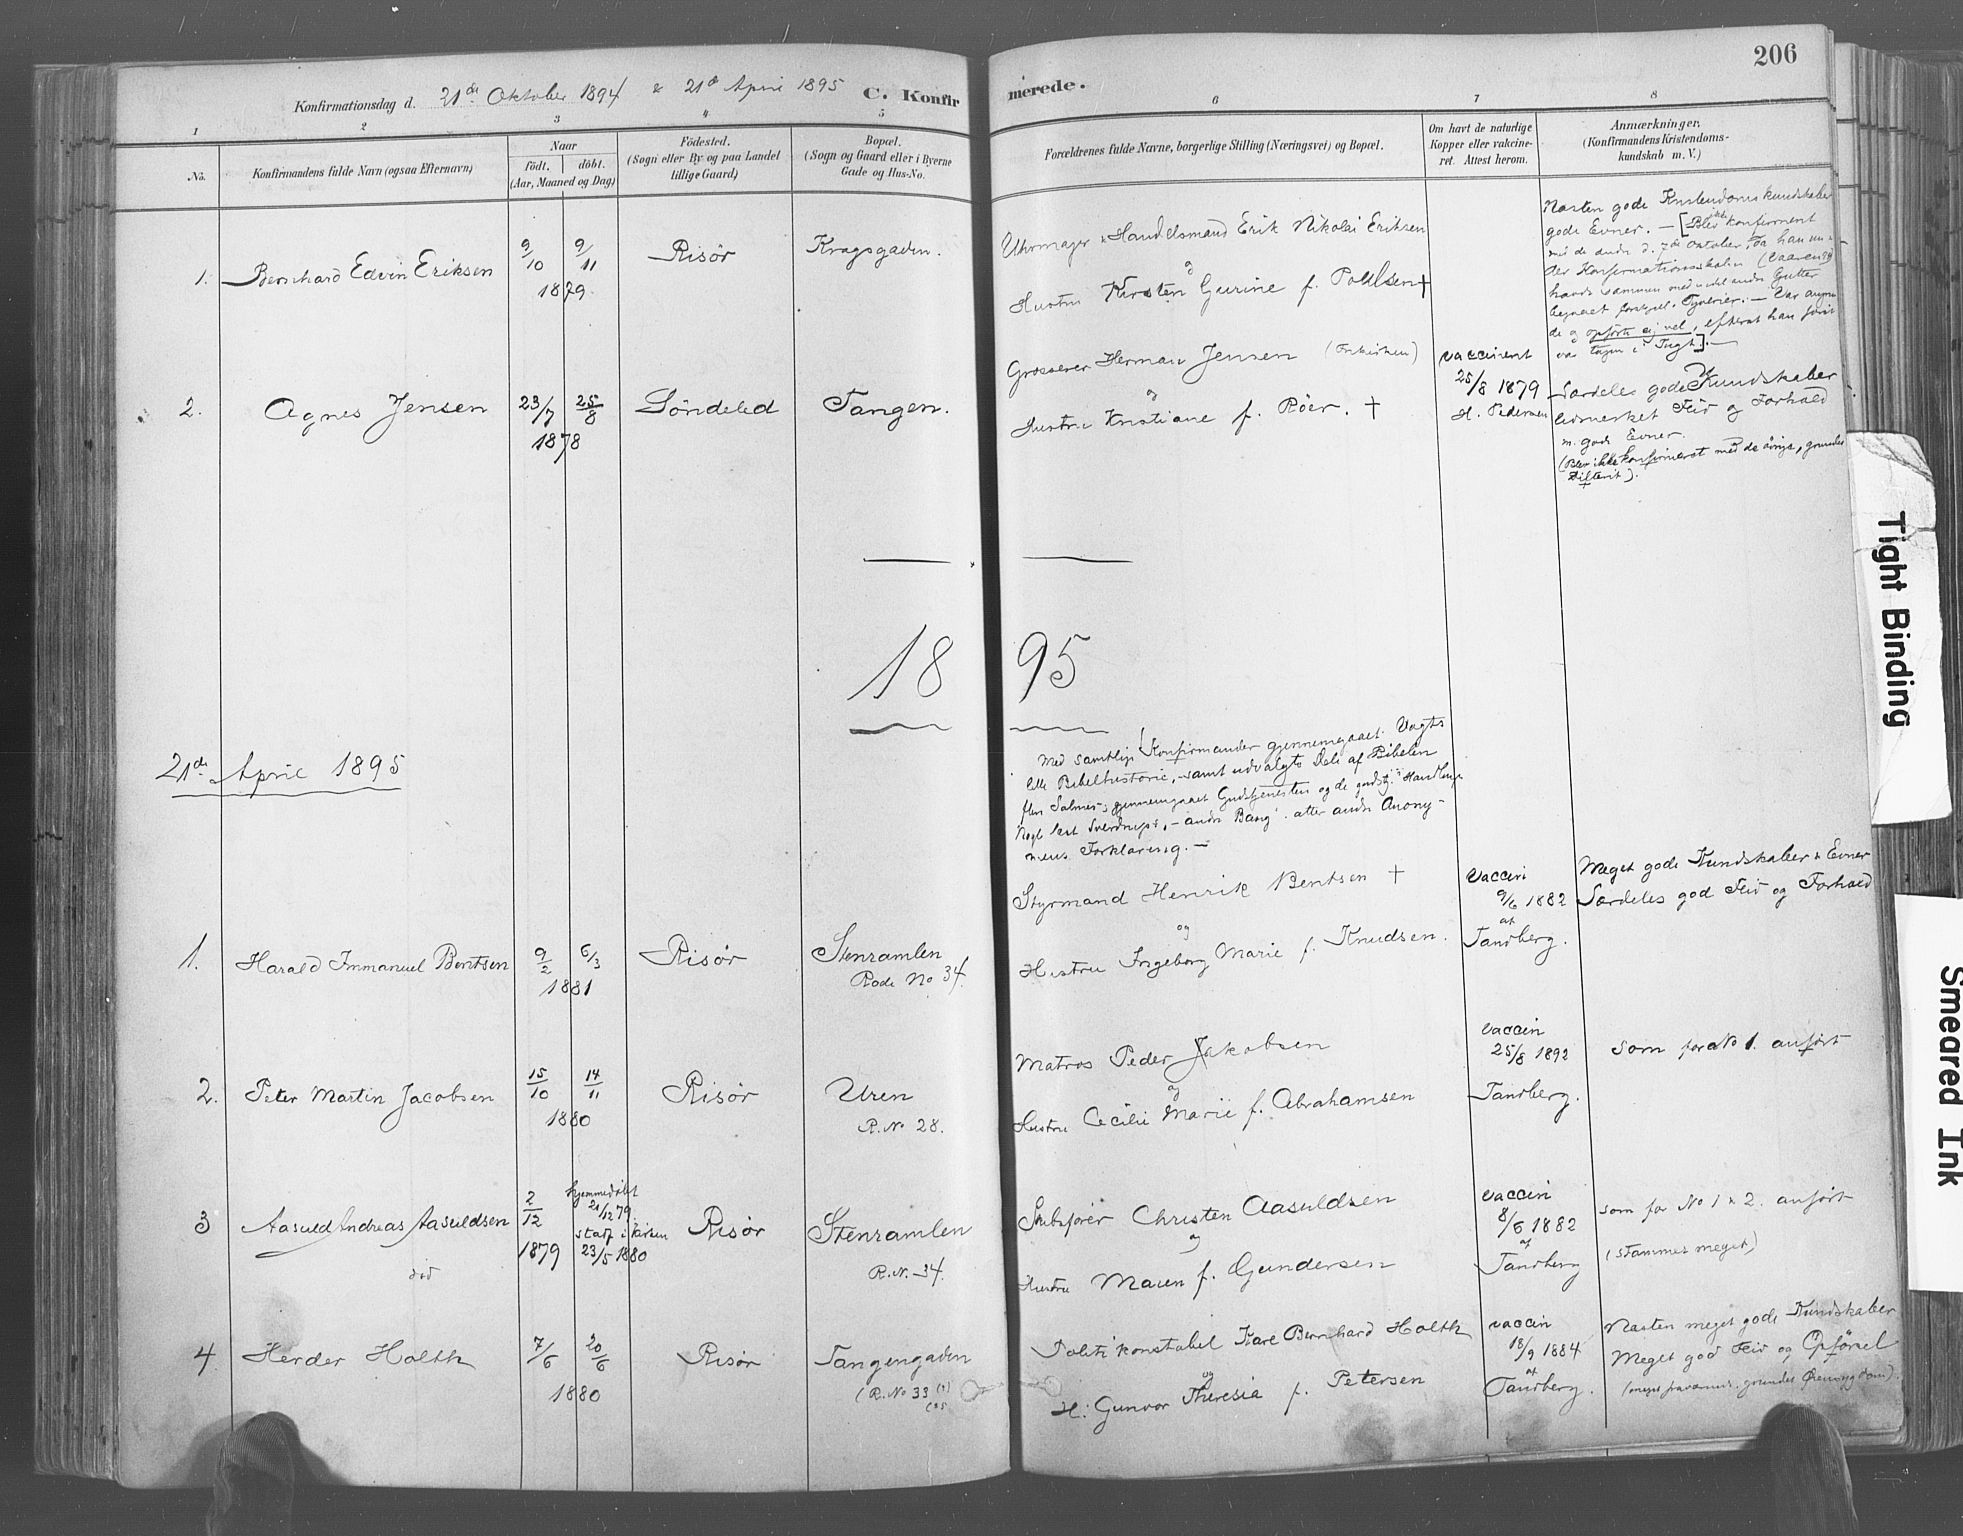 206
Konfirmationsdag d. 21de Oktober 1894 & 21de April 1895 C. Konfirmerede.
1 2 3 4 5 6 7 8
No.
Konfirmandens fulde Navn (ogsaa Efternavn)
Naar
født. døbt.
(Aar, Maaned og Dag)
Fødested.
(Sogn eller By og paa Landet
tillige Gaard)
Bopæl.
(Sogn og Gaard eller i Byerne
Gade og Hus-No.
Forældrenes fulde Navne, borgerlige Stilling (Næringsvei) og Bopæl.
Om havt de naturlige
Kopper eller vakcine-
ret. Attest herom.
Anmærkninger.
(Konfirmandens Kristendoms-
kundskab m. V.)
1. Bernhard Edvin Eriksen
9/10 9/11
1879
Risør
Kragsgaden.
Uhrmager & Handelsmand Erik Nikolai Eriksen
og
Hustru Kirsten Gurine f. Pohlsen †
Næsten gode Kristendomskundskaber
gode Evner. — [Blev ikke konfirmeret
med de andre d. 7de Oktober, da han un-
der Konfirmationsskolen
havde sammen med andre Gutter
begaaet Tyverier. — Var
de og opførte sig vel, efterat han først
var tagen i Tugt]. —
2. Agnes Jensen
23/7 25/8
1878
Søndeled
Tangen.
Grosserer Herman Jensen
og
Hustru Kristiane f. Röer. †
vaccineret
25/8 1879
H. Pedersen
Særdeles gode Kundskaber
Udmerket Flid og Forhold
m. gode Evner.
(Blev ikke konfirmeret med de øvrige, grundet
Difterit).
1895
21de April 1895
Med samtlige Konfirmander gjennemgaaet Vogts
lille Bibelhistorie, samt udvalgte Dele af Bibelen
flere Salmer; gjennemgaaet Gudstjenesten og de gudstj. Handlinger
Nogle læst Sverdrups, — andre Bang's atter andre Anony-
mens Forklaring. —
1. Harald Immanuel Bentsen
9/2 6/3
1881
Risør
Stenramlen
Rode No 34.
Styrmand Henrik Bentsen †
og
Hustru Ingeborg Marie f. Knudsen.
vaccin
9/6 1882
af
Tandberg.
Meget gode Kundskaber & Evner
Særdeles god Flid og Forhold
2. Peter Martin Jacobsen
15/10 14/11
1880
Risør
Uren
R. No 28.
Matros Peder Jakobsen
og
Hustru Cecilie Marie f. Abrahamsen
vaccin
25/8 1892
Tandberg.
som for No 1. anført
3 Aasuld Andreas Aasuldsen
død
2/12
1879
hjemmedøbt
21/12 79
stadf. i Kirken
23/5 1880
Risør
Stenramlen
R. N. 34.
Skibsfører Christen Aasuldsen
og
Hustru Maren f. Gundersen
vaccin
8/6 1882
af
Tandberg
som for No 1 & 2. anført
(stammer meget)
4 Herder Holth
7/6 20/6
1880
Risør
Tangengaden
(R. No 33
Politikonstabel Karl Bernhard Holth
og
H: Gunvor Theresia f. Petersen
vaccin
18/9 1884
af
Tandberg.
Næsten meget gode Kundskaber
Meget god Flid og Opførsel
(meget fraværende grundet Øiensygdom).
Tight Binding
Smeared Ink